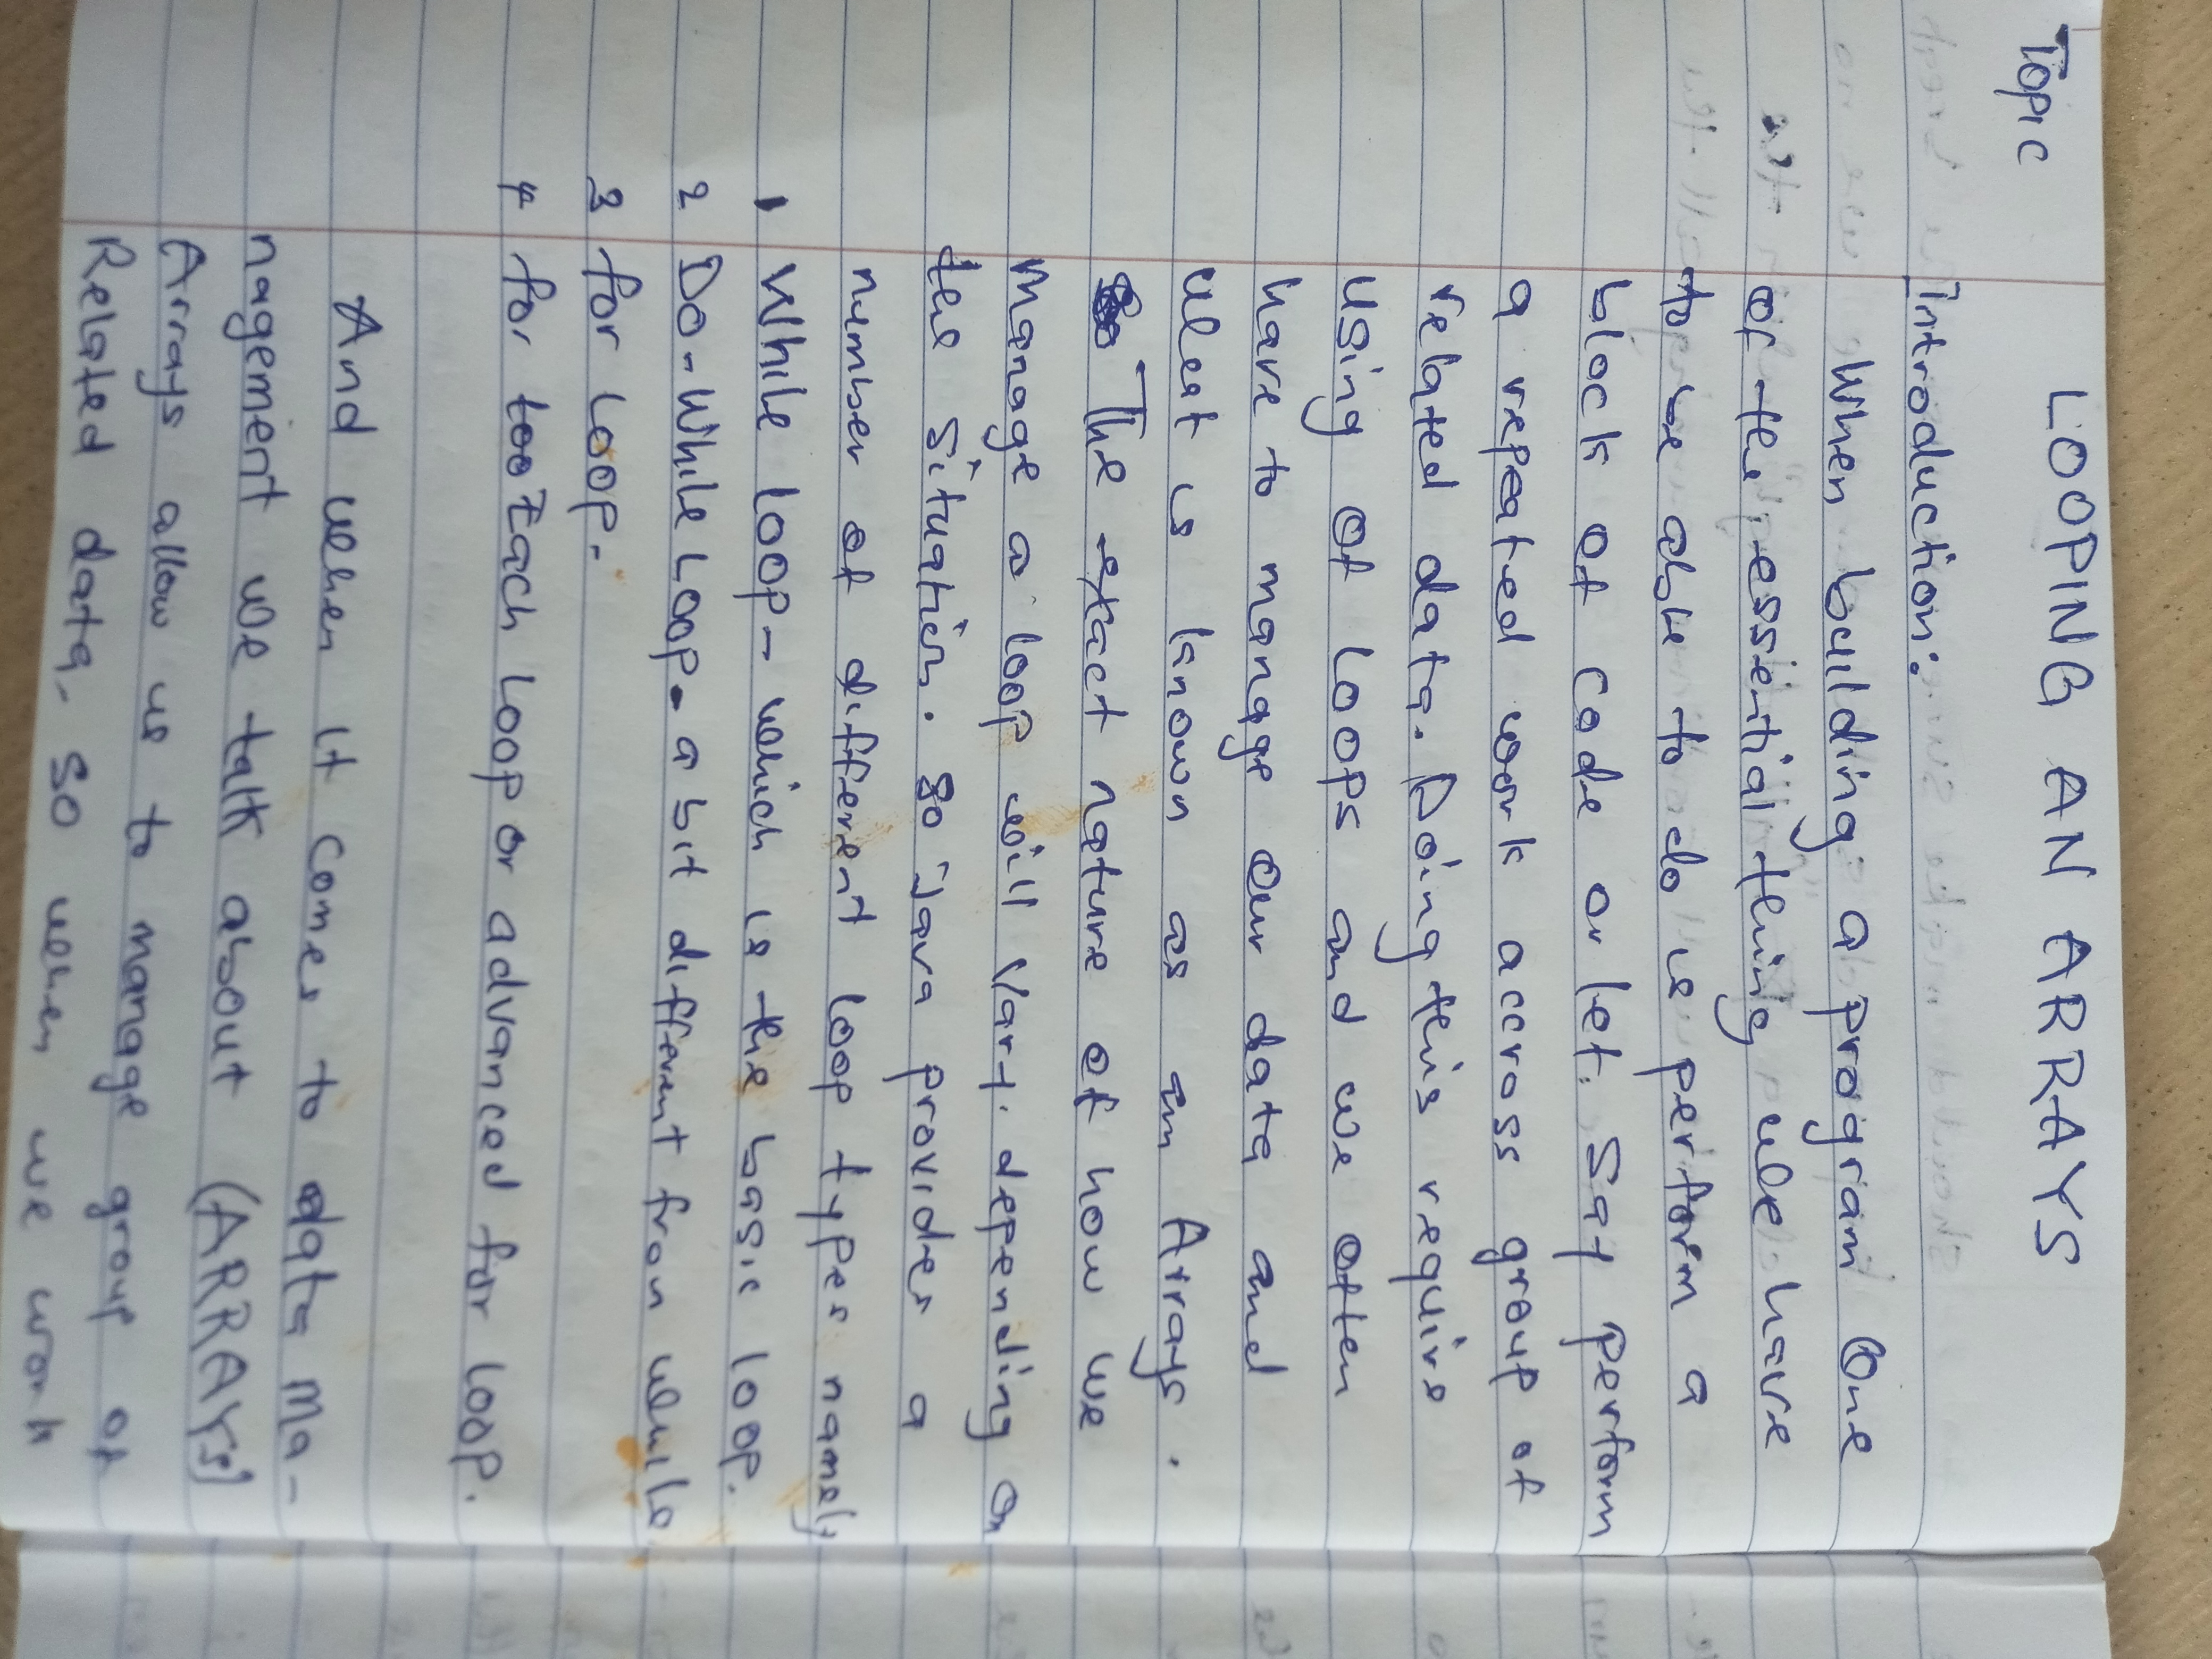 Topic LOOPING AN ARRAYS
Introduction:
When building a program One
of the essential thing we have
to be able to do is perform a
block of code or let. Say perform
a repeated work accross group of
related data. Doing this require
using of Loops and we often
have to manage our data and
what is known as an Arrays.
The exact nature of how we
manage a loop will Vary. depending on
the Situation. So Java provides a
number of different loop types namely
1 While loop - which is the basic loop.
2 Do-While Loop - a bit different from while
3 for Loop.
4 for Each Loop or advanced for loop.
And when it comes to data ma-
nagement we talk about (ARRAYS)
Arrays allow us to manage group of
Related data, so when we work